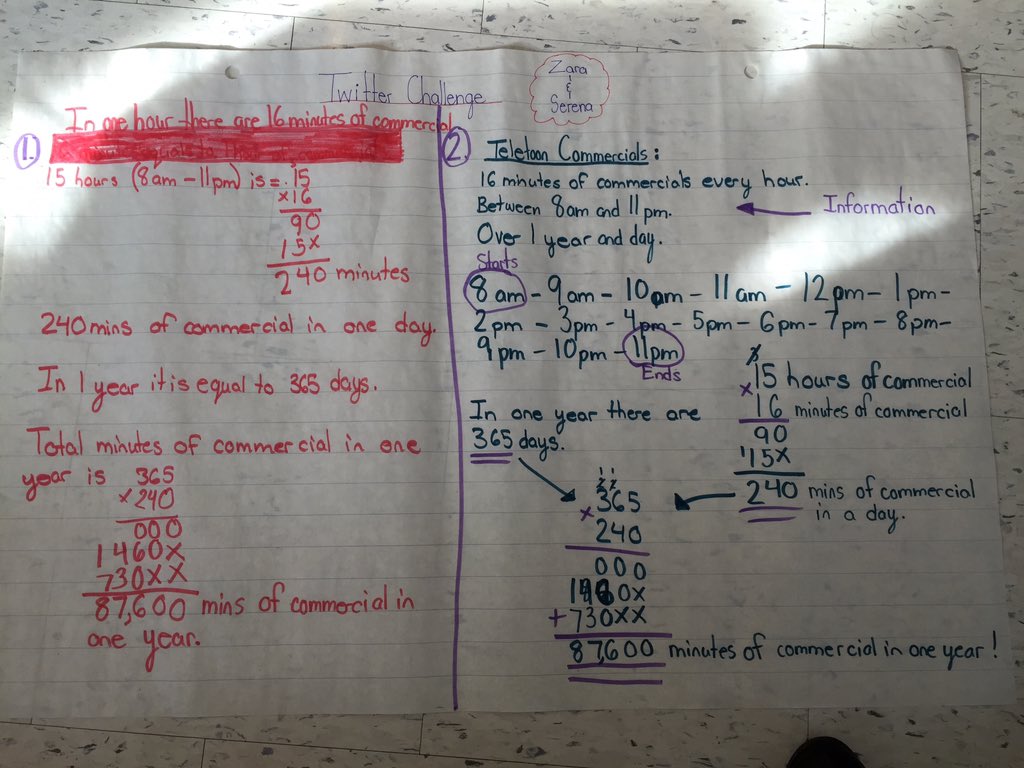 Twitter Challenge
Zara
&
Serena
In one hour there are 16 minutes of commercial
1.
15 hours (8am - 11pm) is = 15
x16
90
15x
240 minutes
240 mins of commercial in one day.
In 1 year it is equal to 365 days.
Total minutes of commercial in one
year is 365
x240
000
1460x
730xx
87,600 mins of commercial in
one year.
2. Teletoon Commercials:
16 minutes of commercials every hour.
Between 8am and 11pm.
Over 1 year and day.
Information
Starts
8am - 9am - 10am - 11am - 12pm - 1pm -
2pm - 3pm - 4pm - 5pm - 6pm - 7pm - 8pm -
9pm - 10pm - 11pm
Ends
15 hours of commercial
x16 minutes of commercial
90
15x
240 mins of commercial
in a day.
In one year there are
365 days.
365
x
240
000
1460x
+730xx
87,600 minutes of commercial in one year!